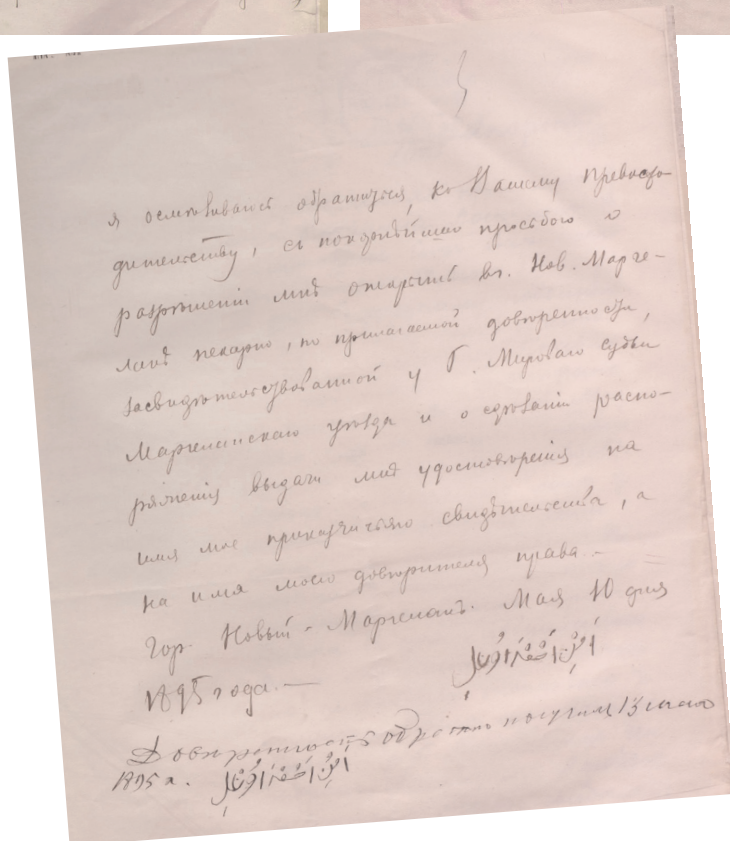 я осмѣливаюсь обратиться, ко Вашему Превосхо-
дительству, съ покорнѣйшею просьбою о
разрѣшеніи мнѣ открыть въ. Нов. Марге-
ланѣ пекарню, по прилагаемой довѣренности,
засвидѣтельствованной у Г. Мироваго Судьи
Маргеланскаго уѣзда и о сдѣланіи распо-
ряженія выдачи мнѣ удостовѣренія на
имя мое прикащичьяго свидѣтельства, а
на имя моего довѣрителя права.-
Гор. Новый-Маргеланъ. Мая 10 дня
1895 года.—
Довѣренность обратно получилъ 13
1895 г.